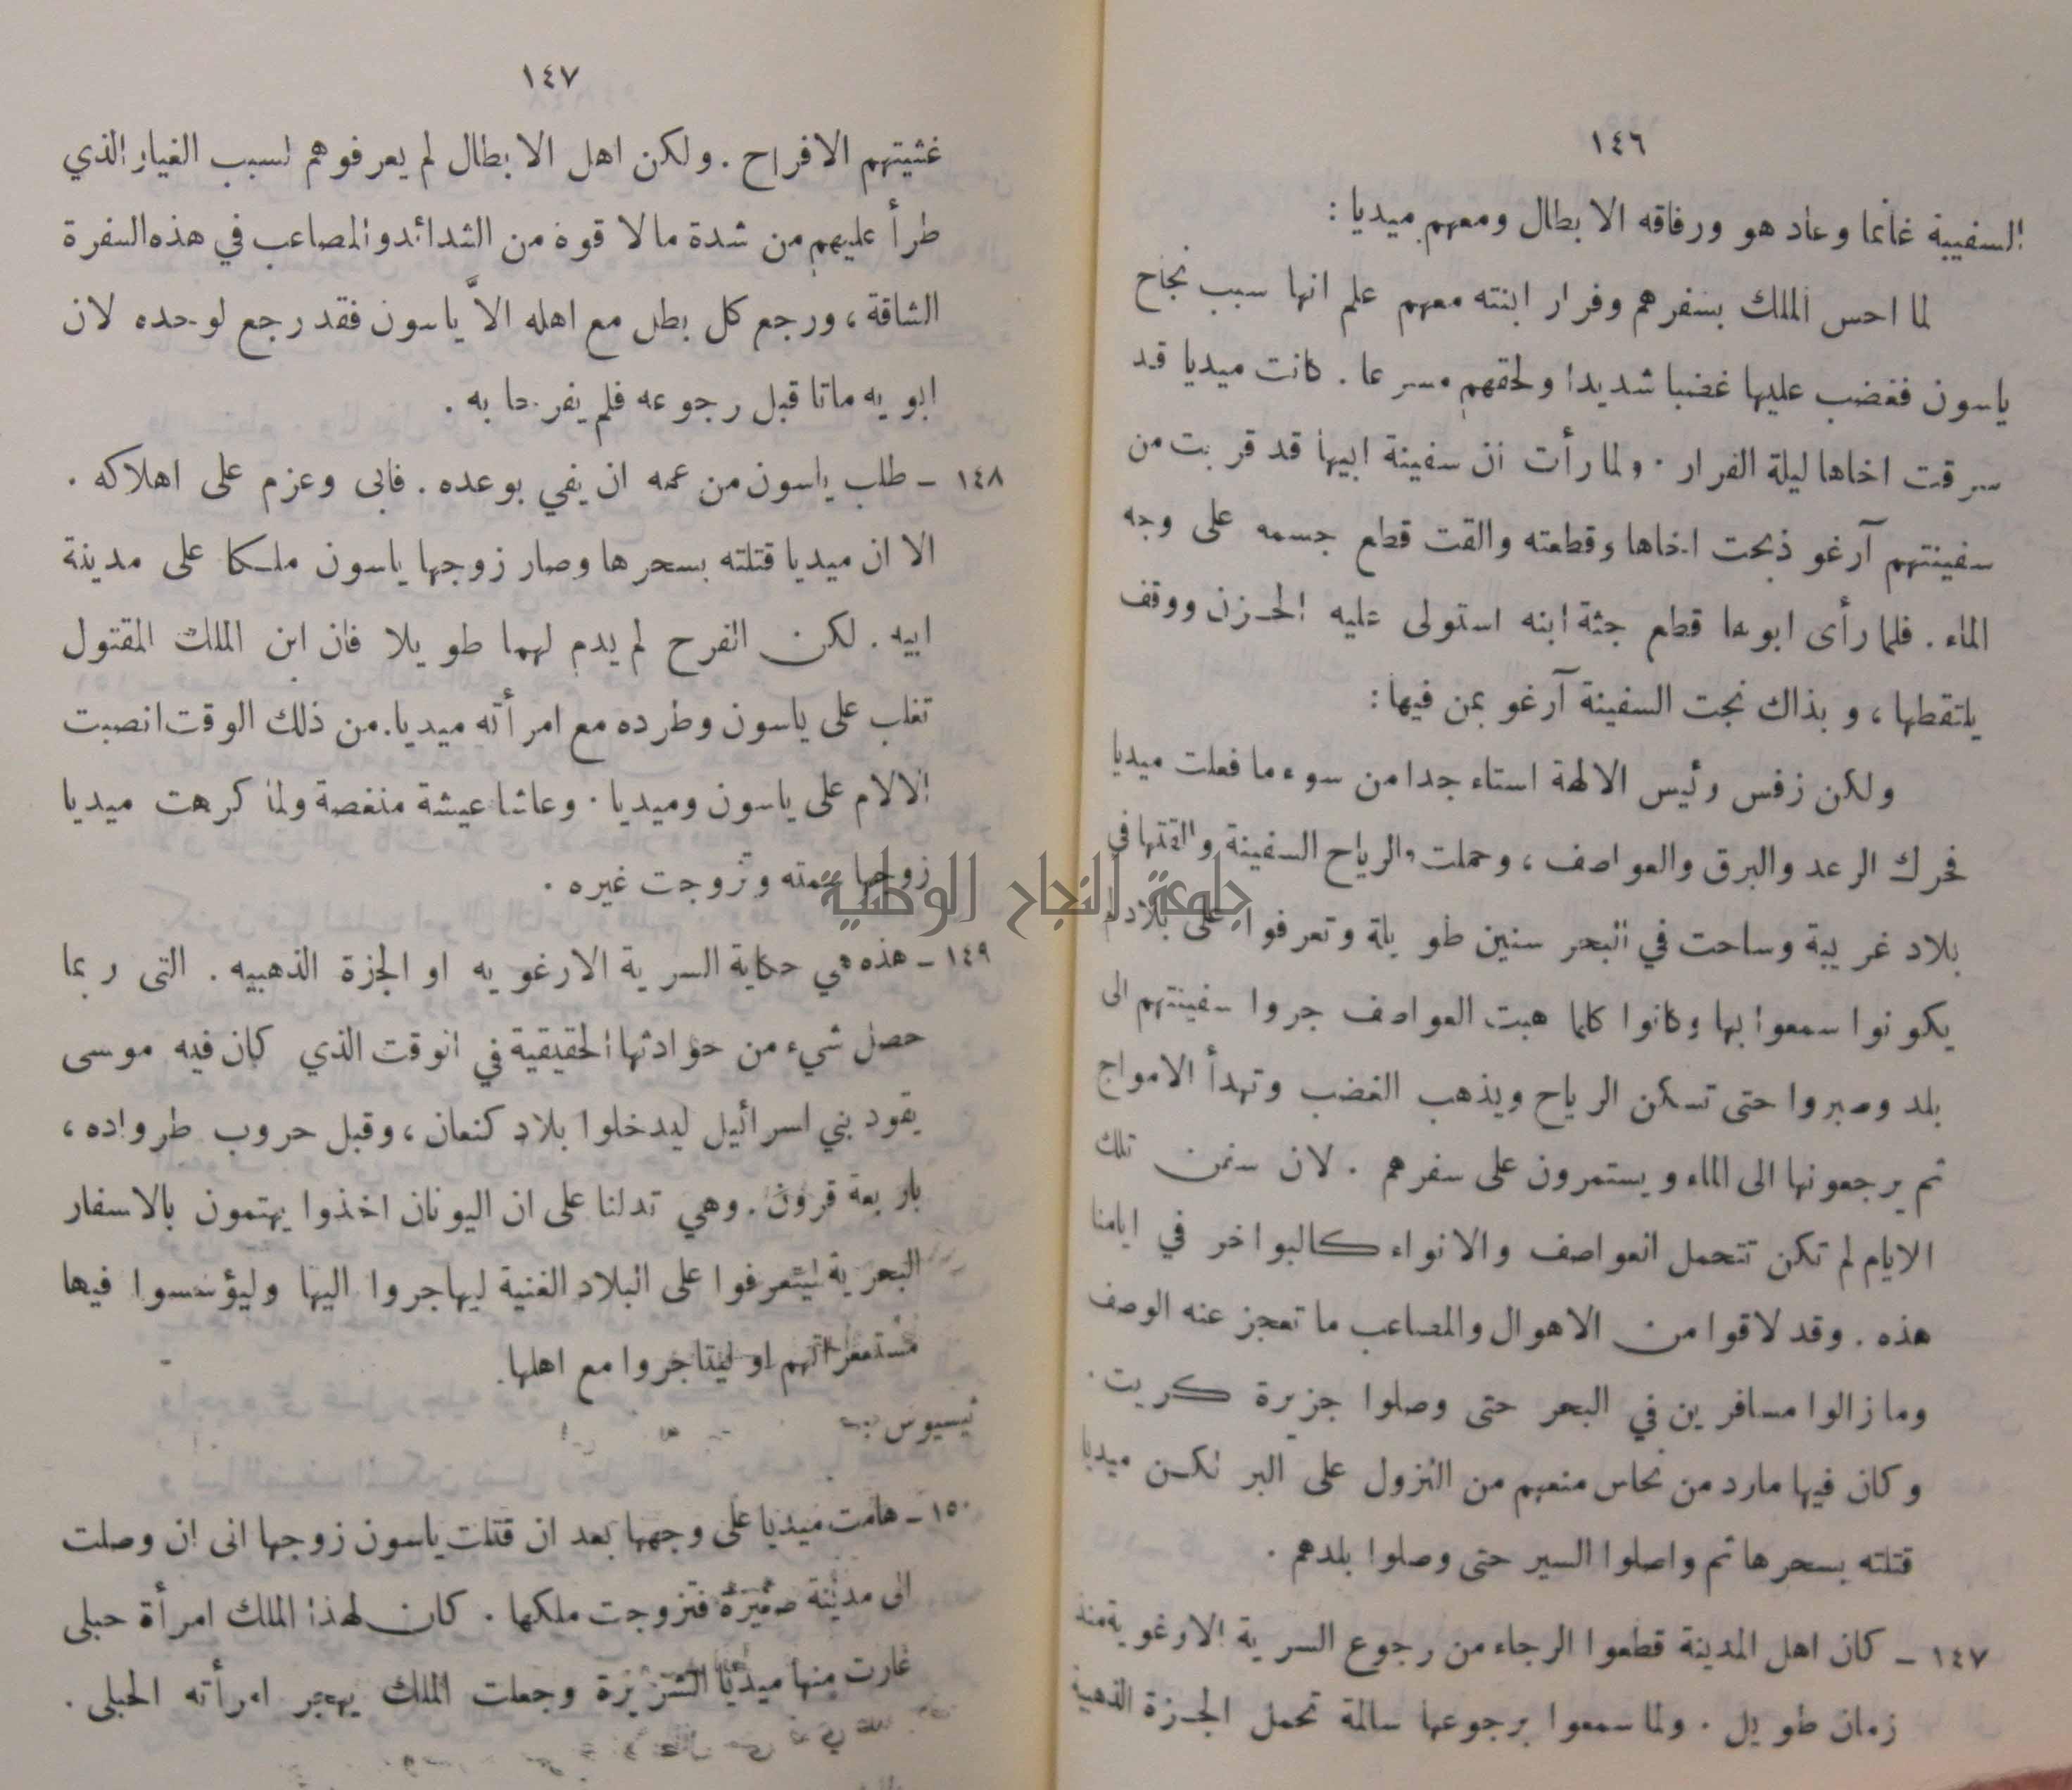 ١٤٦
السفينة غانما وعاد هو ورفاقه الابطال ومعهم ميديا :
لما احس الملك بسفرهم وفرار ابنته معهم علم انها سبب نجاح
ياسون فغضب عليها غضبا شديدا ولحقهم مسرعا . كانت ميديا قد
سرقت اخاها ليلة الفرار . ولما رأت ان سفينة ابيها قد قربت من
سفينتهم آرغو ذبحت اخاها وقطعته والقت قطع جسمه على وجه
الماء . فلما رأى ابوها قطع جثة ابنه استولى عليه الحزن ووقف
يلتقطها ، وبذاك نجت السفينة آرغو بمن فيها :
ولكن زفس رئيس الالهة استاء جدا من سوء ما فعلت ميديا
فحرك الرعد والبرق والعواصف ، وحملت الرياح السفينة والقتها في
بلاد غريبة وساحت في البحر سنين طويلة وتعرفوا على بلاد لم
يكونوا سمعوا بها وكانوا كلما هبت العواصف جروا سفينتهم الى
بلد وصبروا حتى تسكن الرياح ويذهب الغضب وتهدأ الامواج
ثم يرجعونها الى الماء ويستمرون على سفرهم . لان سفن تلك
الايام لم تكن تتحمل العواصف والانواء كالبواخر في ايامنا
هذه . وقد لاقوا من الاهوال والمصاعب ما تعجز عنه الوصف
وما زالوا مسافرين في البحر حتى وصلوا جزيرة كريت .
وكان فيها مارد من نحاس منعهم من النزول على البر لكن ميديا
قتلته بسحرها ثم واصلوا السير حتى وصلوا بلدهم .
١٤٧ – كان اهل المدينة قطعوا الرجاء من رجوع السرية الارغوية منذ
زمان طويل . ولما سمعوا برجوعها سالمة تحمل الجزة الذهبية
١٤٧
غشيتهم الافراح . ولكن اهل الابطال لم يعرفوهم لسبب الغيار الذي
طرأ عليهم من شدة ما لاقوه من الشدائد والمصاعب في هذه السفرة
الشاقة ، ورجع كل بطل مع اهله الاّ ياسون فقد رجع لوحده لان
ابويه ماتا قبل رجوعه فلم يفرحا به .
١٤٨ – طلب ياسون من عمه ان يفي بوعده . فابى وعزم على اهلاكه .
الا ان ميديا قتلته بسحرها وصار زوجها ياسون ملكا على مدينة
ابيه . لكن الفرح لم يدم لهما طويلا فان ابن الملك المقتول
تغلب على ياسون وطرده مع امرأته ميديا . من ذلك الوقت انصبت
الالام على ياسون وميديا . وعاشا عيشة منغصة ولما كرهت ميديا
زوجها سمته وتزوجت غيره .
جامعة النجاح الوطنية
١٤٩ – هذه هي حكاية السرية الارغويه او الجزة الذهبيه . التى ربما
حصل شيء من حوادثها الحقيقية في الوقت الذي كان فيه موسى
يقود بني اسرائيل ليدخلوا بلاد كنعان ، وقبل حروب طرواده ،
باربعة قرون . وهي تدلنا على ان اليونان اخذوا يهتمون بالاسفار
البحرية ليتعرفوا على البلاد الغنية ليهاجروا اليها وليؤسسوا فيها
مستعمراتهم او ليتاجروا مع اهلها .
ثيسيوس
١٥٠ – هامت ميديا على وجهها بعد ان قتلت ياسون زوجها الى ان وصلت
الى مدينة صغيرة فتزوجت ملكها . كان لهذا الملك امرأة حبلى
غارت منها ميديا الشريرة وجعلت الملك يهجر امرأته الحبلى .